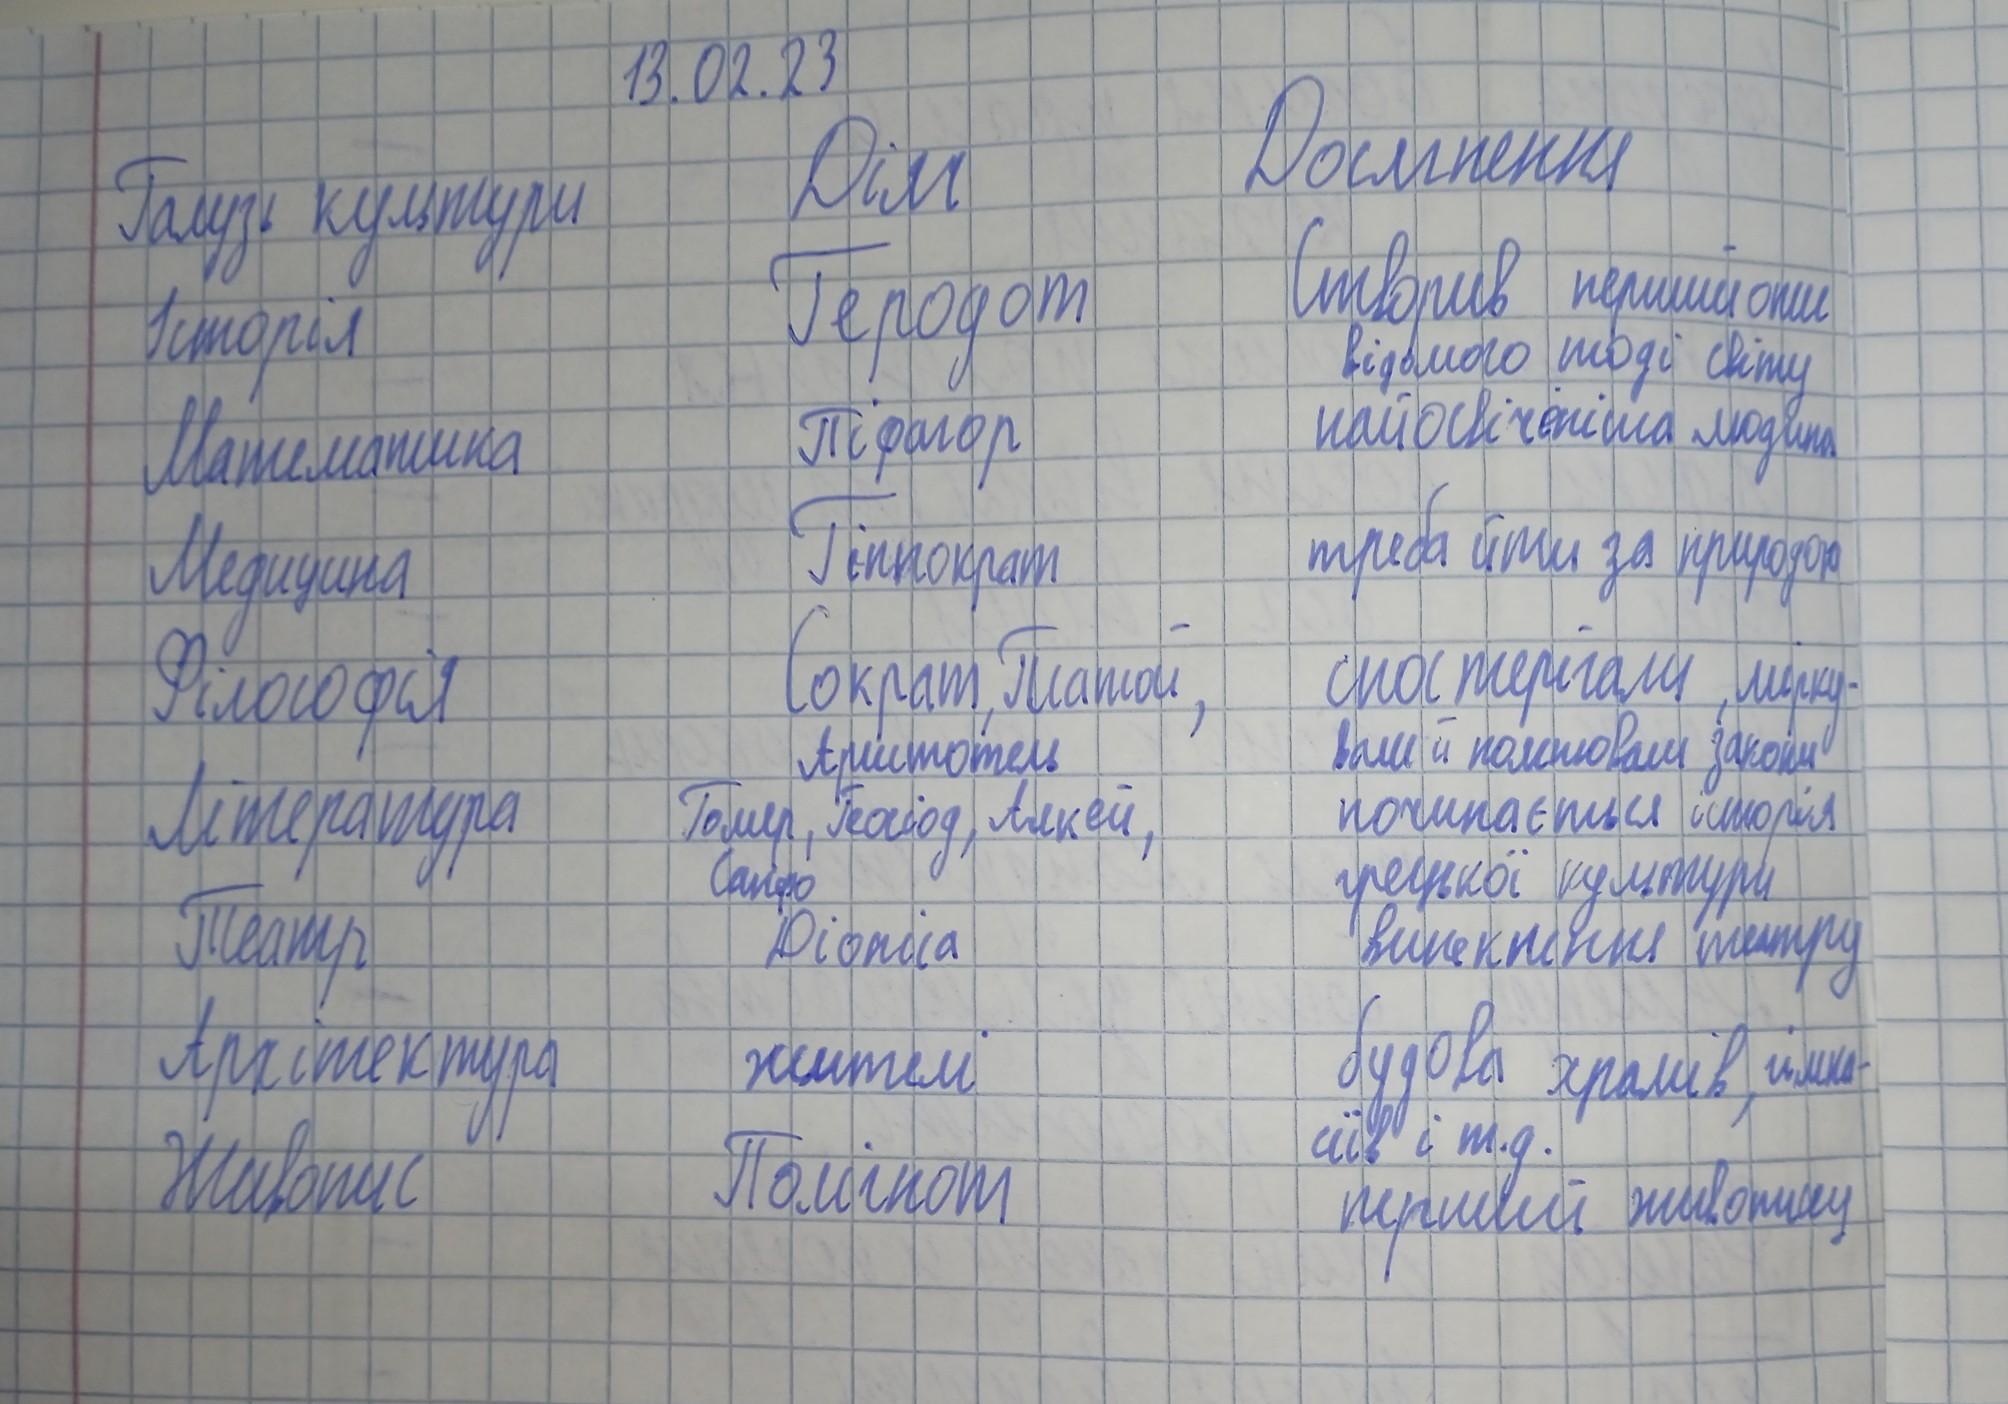 13.02.23
Галузь культури Діяч Досягнення
Історія Геродот Створив перший опис
відомого тоді світу
Математика Піфагор найосвіченіша людина
Медицина Гіппократ треба йти за природою
Філософія Сократ, Платон, спостерігали, мірку-
Аристотель вали й закони
Література Гомер, Гесіод, Алкей, починається історія
Сапфо грецької культури
Театр Діоніса виникнення театру
Архітектура жителі будова храмів, гімна-
сіїв і т.д.
Живопис Полігнот перший живописец